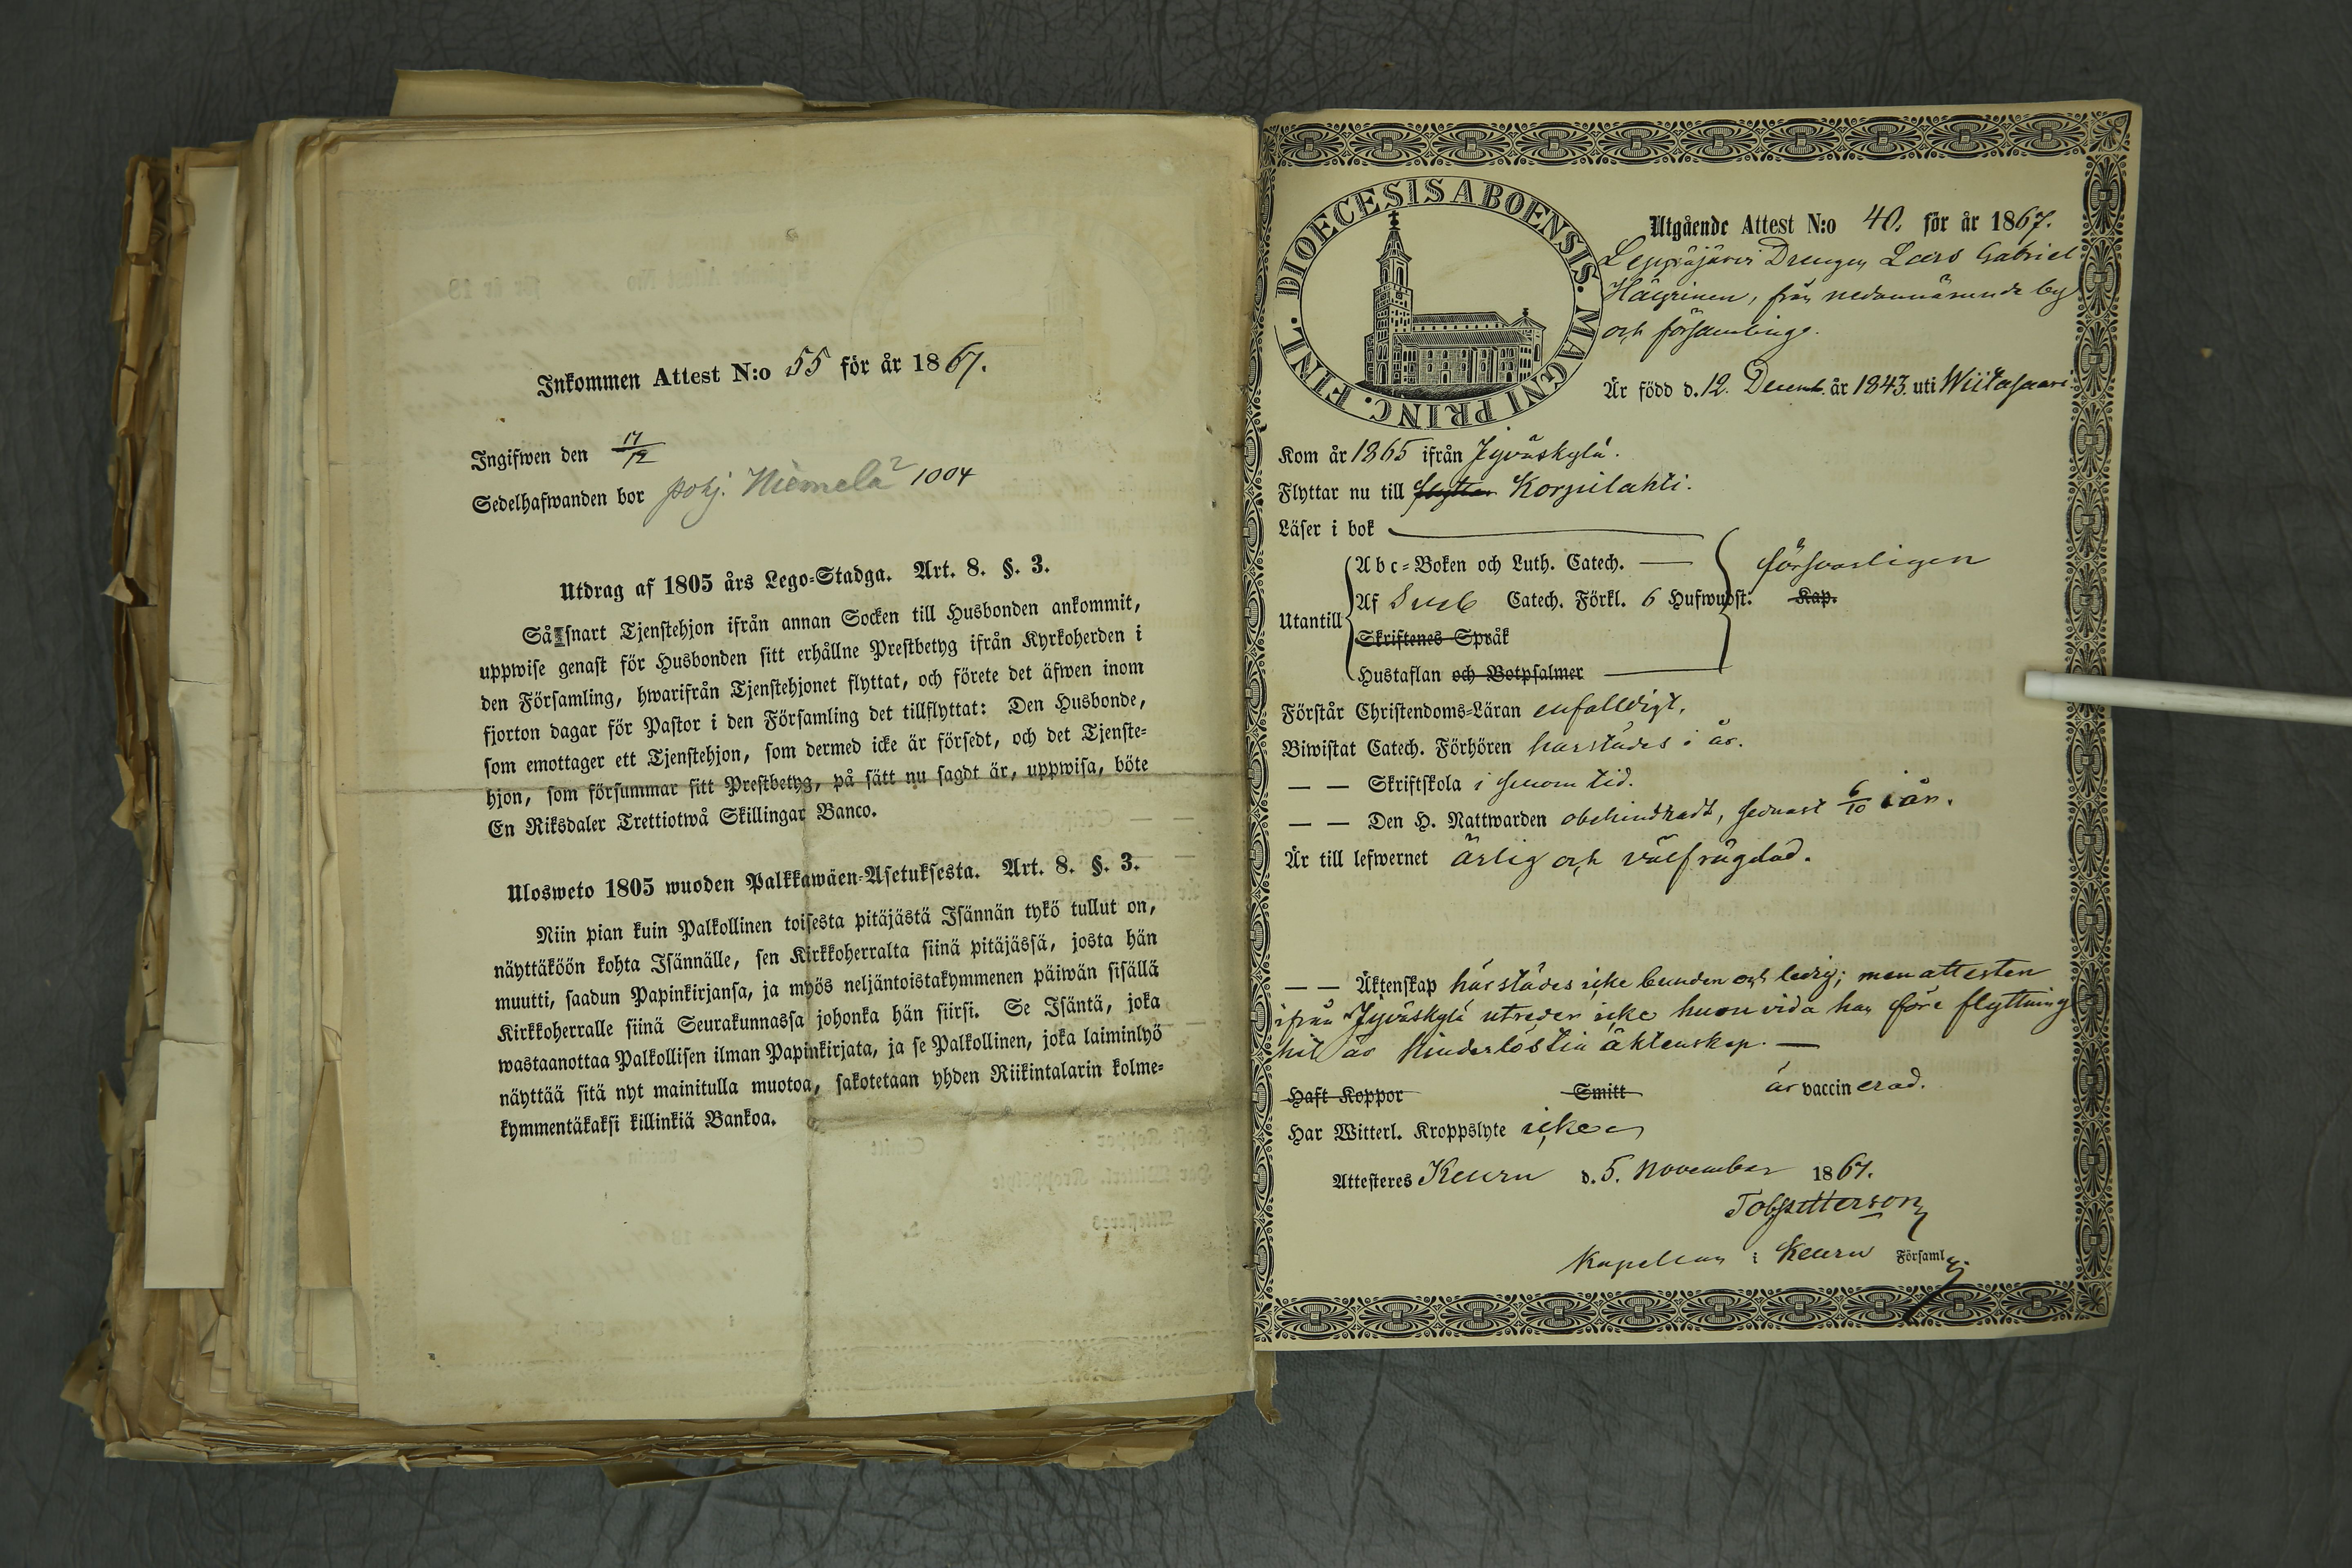 Inkommen Attest N:o 55 för år 1867.
Ingifwen den 17/12
Sedelhafwanden bor pohj. Niemelä 2 1004
Utdrag af 1805 års Lego-Stadga. Art. 8. §. 3.
Så snart Tjenstehjon ifrån annan Socken till Husbonden ankommit,
uppwise genast för Husbonden sitt erhållne Prestbetyg ifrån Kyrkoherden i
den Församling, hwarifrån Tjenstehjonet flyttat, och förete det äfwen inom
fjorton dagar för Pastor i den Församling det tillflyttat: Den Husbonde,
som emottager ett Tjenstehjon, som dermed icke är försedt, och det Tjenste-
hjon, som försummar sitt Prestbetyg, på sätt nu sagdt är, uppwisa, böte
En Riksdaler Trettiotwå Skillingar Banco.
Ulosweto 1805 wuoden Palkkawäen-Asetuksesta. Art. 8. §. 3.
Niin pian kuin Palkollinen toisesta pitäjästä Isännän tykö tullut on,
näyttäköön kohta Isännälle, sen Kirkkoherralta siinä pitäjässä, josta hän
muutti, saadun Papinkirjansa, ja myös neljäntoistakymmenen päiwän sisällä
Kirkkoherralle siinä Seurakunnassa johonka hän siirsi. Se Isäntä, joka
wastaanottaa Palkollisen ilman Papinkirjata, ja se Palkollinen, joka laiminlyö
näyttää sitä nyt mainitulla muotoa, sakotetaan yhden Riikintalarin kolme-
kymmentäkaksi killinkiä Bankoa.
DIOECESIS ABOENSIS. MAGNI PRINC. FINL.
Utgående Attest N:o 40. för år 1867.
Leppäjärvi Drengen Lars Gabriel
Häyrinen, från nedannämnde by
och församling.
Är född d. 12. Decemb. år 1843. uti Wiitasaari.
Kom år 1865 ifrån Jyväskylä.
Flyttar nu till flyttar Korpilahti.
Läser i bok
Abc-Boken och Luth. Catech. — försvarligen
Utantill Af Sveb Catech. Förkl. 6 Hufwudst. Kap.
Skriftenes Språk
Hustaflan och Botpsalmer
Förstår Christendoms-Läran enfalldigt.
Biwistat Catech. Förhören härstädes i år.
— — Skriftskola i sinom tid.
— — Den H. Nattwarden obehindradt, sednast 6/10 i år.
Är till lefwernet ärlig och välfrägdad.
— — Äktenskap härstädes icke bunden och ledig; men attesten
ifrån Jyväskylä utreder icke huruvida han före flyttning
hit är hinderlös till äktenskap. —
Haft Koppor Smitt är vaccinerad.
Har Witterl. Kroppslyte icke
Attesteres Keuru d. 5. November 1867.
Kapellan i Keuru Församl